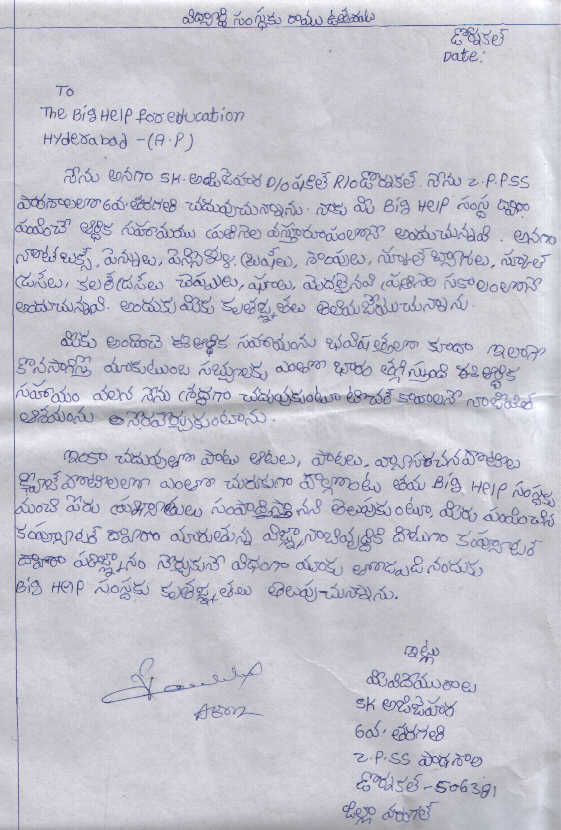 విద్యార్థి సంస్థకు రాయు ఉత్తరం
డోర్నకల్
Date:
To
The Big HELP for education
Hyderabad - (A.P)
నేను అనగా SK. అజిజెహార D/o షకీల్ R/o డోర్నకల్. నేను Z.P.P.SS
పాఠశాలలో 6వ తరగతి చదువుచున్నాను. నాకు మీ Big HELP సంస్థ ద్వారా
పంపించే ఆర్థిక సహాయము ప్రతినెల వస్తురూపంలోనే అందుచున్నవి. అనగా
నోట్‌బుక్స్, పెన్నులు, పెన్సిళ్ళు, బ్రష్‌లు, సోయలు, స్కూల్ బ్యాగులు, స్కూల్
డ్రస్‌లు, కలర్‌డ్రస్‌లు చెప్పులు, షూలు, మొదలైనవి ప్రతినెల సకాలంలోనే
అందుచున్నవి. అందుకు మీకు కృతజ్ఞతలు తెలియజేయుచున్నాను.
మీకు అందించే ఈ ఆర్థిక సహాయంను భవిష్యత్తులో కూడా ఇలాగే
కొనసాగిస్తే మాకుటుంబ సభ్యులకు ఎంతో భారం తగ్గిస్తుంది ఈ ఆర్థిక
సహాయం వలన నేను శ్రద్ధగా చదువుకుంటూ టీచర్ కావాలనే నా జీవిత
ఆశయంను నెరవేర్చుకుంటాను.
ఇంకా చదువుతో పాటు ఆటలు, పాటలు, వ్యాసరచన పోటీలు
క్విజ్ పోటీలలో ఎంతో చురుకుగా పాల్గొంటు తమ Big HELP సంస్థకు
మంచి పేరు ప్రఖ్యాతులు సంపాదిస్తానని తెలుపుకుంటూ, మీరు పంపించిన
కంప్యూటర్ ద్వారా మాకున్న విజ్ఞానాభివృద్ధికి దోహదంగా కంప్యూటర్
ద్వారా పరిజ్ఞానం నేర్చుకునే విధంగా మాకు తోడ్పడినందుకు
Big HELP సంస్థకు కృతజ్ఞతలు తెలుపుచున్నాను.
ఇట్లు
మీ విదేయురాలు
SK అజిజెహార
6వ తరగతి
Z.P.SS పాఠశాల
డోర్నకల్ - 506381
జిల్లా వరంగల్